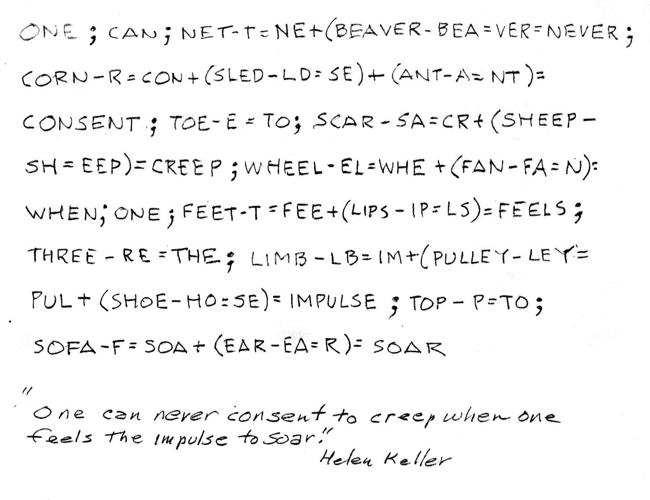 ONE ; CAN ; NET-T = NE+(BEAVER-BEA=VER=NEVER ;
CORN-R = CON+(SLED-LD=SE)+(ANT-A=NT)=
CONSENT ; TOE-E = TO; SCAR-SA=CR+(SHEEP-
SH=EEP)=CREEP ; WHEEL-EL=WHE+(FAN-FA=N)=
WHEN; ONE ; FEET-T=FEE+(LIPS-IP=LS)=FEELS ;
THREE-RE=THE; LIMB-LB=IM+(PULLEY-LEY=
PUL+(SHOE-HO=SE)=IMPULSE ; TOP-P=TO;
SOFA-F=SOA+(EAR-EA=R)=SOAR
"One can never consent to creep when one
feels the impulse to soar."
Helen Keller